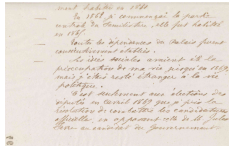 nent habités en 1861
En 1861 je commençai le percement
central du familistère, elle fut habitée
en 1865.
Toutes les dépendances du palais furent
successivement établies.
Les idées sociales avaient été la
préoccupation de ma vie jusque en 1869,
mais j'étais resté étranger à la vie
politique.
C'est seulement aux élections des
députés en avril 1869 que je pris la
résolution de combattre les candidatures
officielles en opposant celle de M. Jules
Favre au candidat du Gouvernement